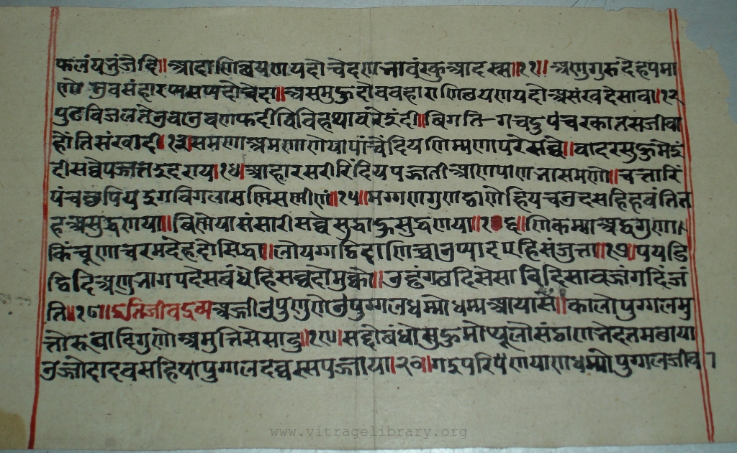 फलंपभुंजेदि॥आदाणिच्छयणयदोचेदणभावंखुआदस्स॥११॥अणुगुरुदेहपमा
णोउवसंहारप्पसप्पदोचेदा॥असमुहदोववहाराणिच्छयणयदोअसंखदेसोवा॥१२
पुढविजलतेउवाउवणप्फदीविविहथावरेइंदी॥विगतिगचदुपंचरकातसजीवा
होंतिसंखादी॥१३॥समणाअमणाणेयापंचेंदियणिम्मणापरेसव्वे॥बादरसुहुमेइं
दीसव्वेपज्जतइदराय॥१४॥आहारसरीरिंदियपज्जतीआणपाणभासमणो॥चत्तारि
पंचछप्पियइगविगलासण्णिसण्णीणं॥१५॥मग्गणगुणठाणेहियचउदसहिहवंतित
हअसुद्धणया॥विणेयासंसारीसव्वेसुद्धाहुसुद्धणया॥१६॥णिकम्माअट्ठगुणा
किंचूणाचरमदेहदोसिद्धा॥लोयग्गठिदाणिच्चाउप्पादवएहिसंजुत्ता॥१७॥पयडि
ट्ठिदिअणुभागपदेसबंधेहिसव्वदोमुक्को॥उड्ढंगच्छदिसेसाविदिसावज्जंगदिंजं
ति॥१८॥इतिजीवदव्वअज्जीउपुणुणेउपुग्गलधम्मोधम्मआयासं॥कालोपुग्गलमु
त्तोरूवादिगुणोअमुत्तिसेसादु॥१९॥सद्दोबंधोसुहुमोथूलोसंठाणभेदतमछाया
उज्जोदादवसहियापुग्गलदव्वस्सपज्जाया॥२०॥गइपरिणयाणधम्मोपुग्गलजीव
www.vitragelibrary.org